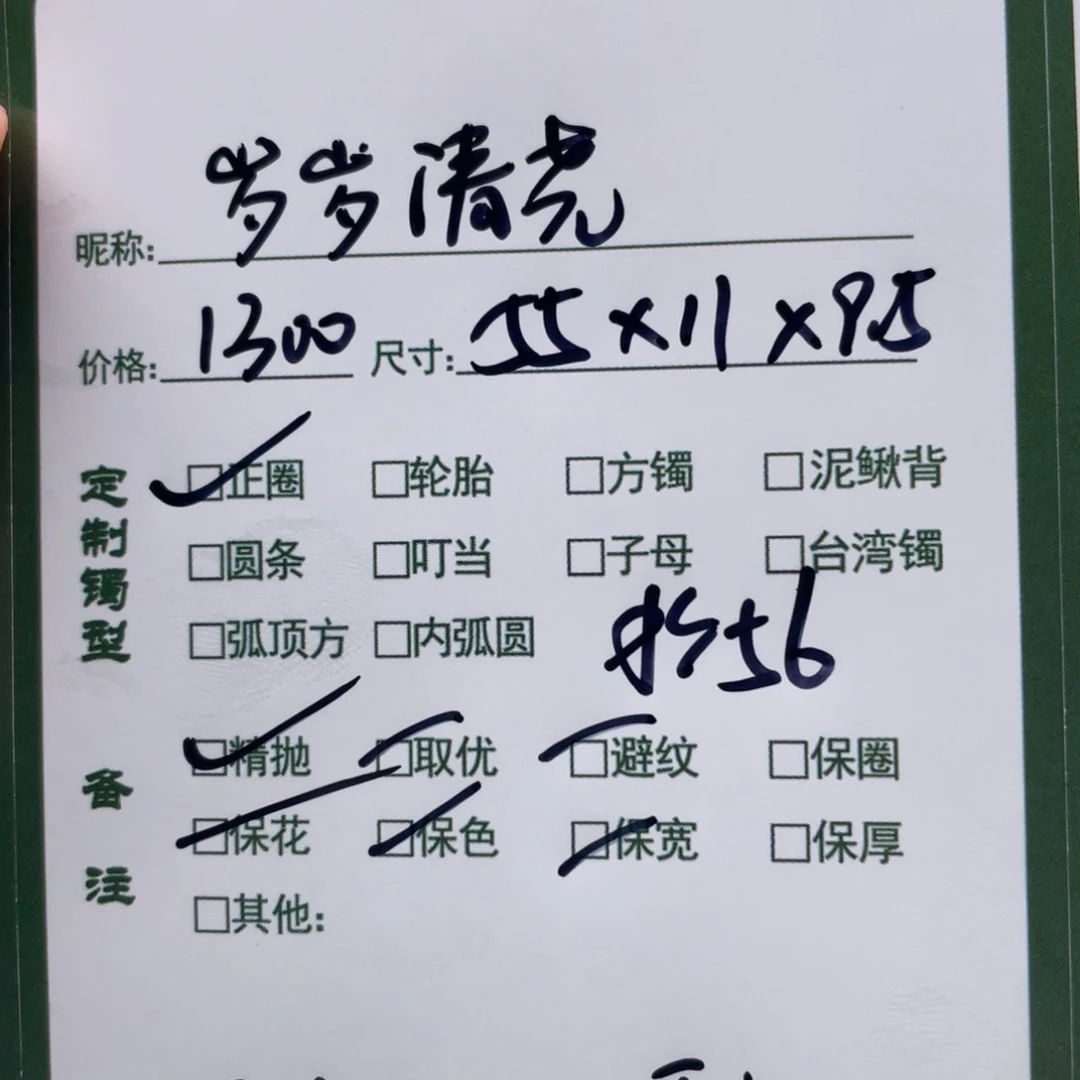 昵称: 岁岁清尧
价格: 1300 尺寸: 55×11×9.5
定制镯型
☑正圈 □轮胎 □方镯 □泥鳅背
□圆条 □叮当 □子母 □台湾镯
□弧顶方 □内弧圆 56
备注
☑精抛 ☑取优 ☑避纹 □保圈
☑保花 ☑保色 ☑保宽 □保厚
□其他: